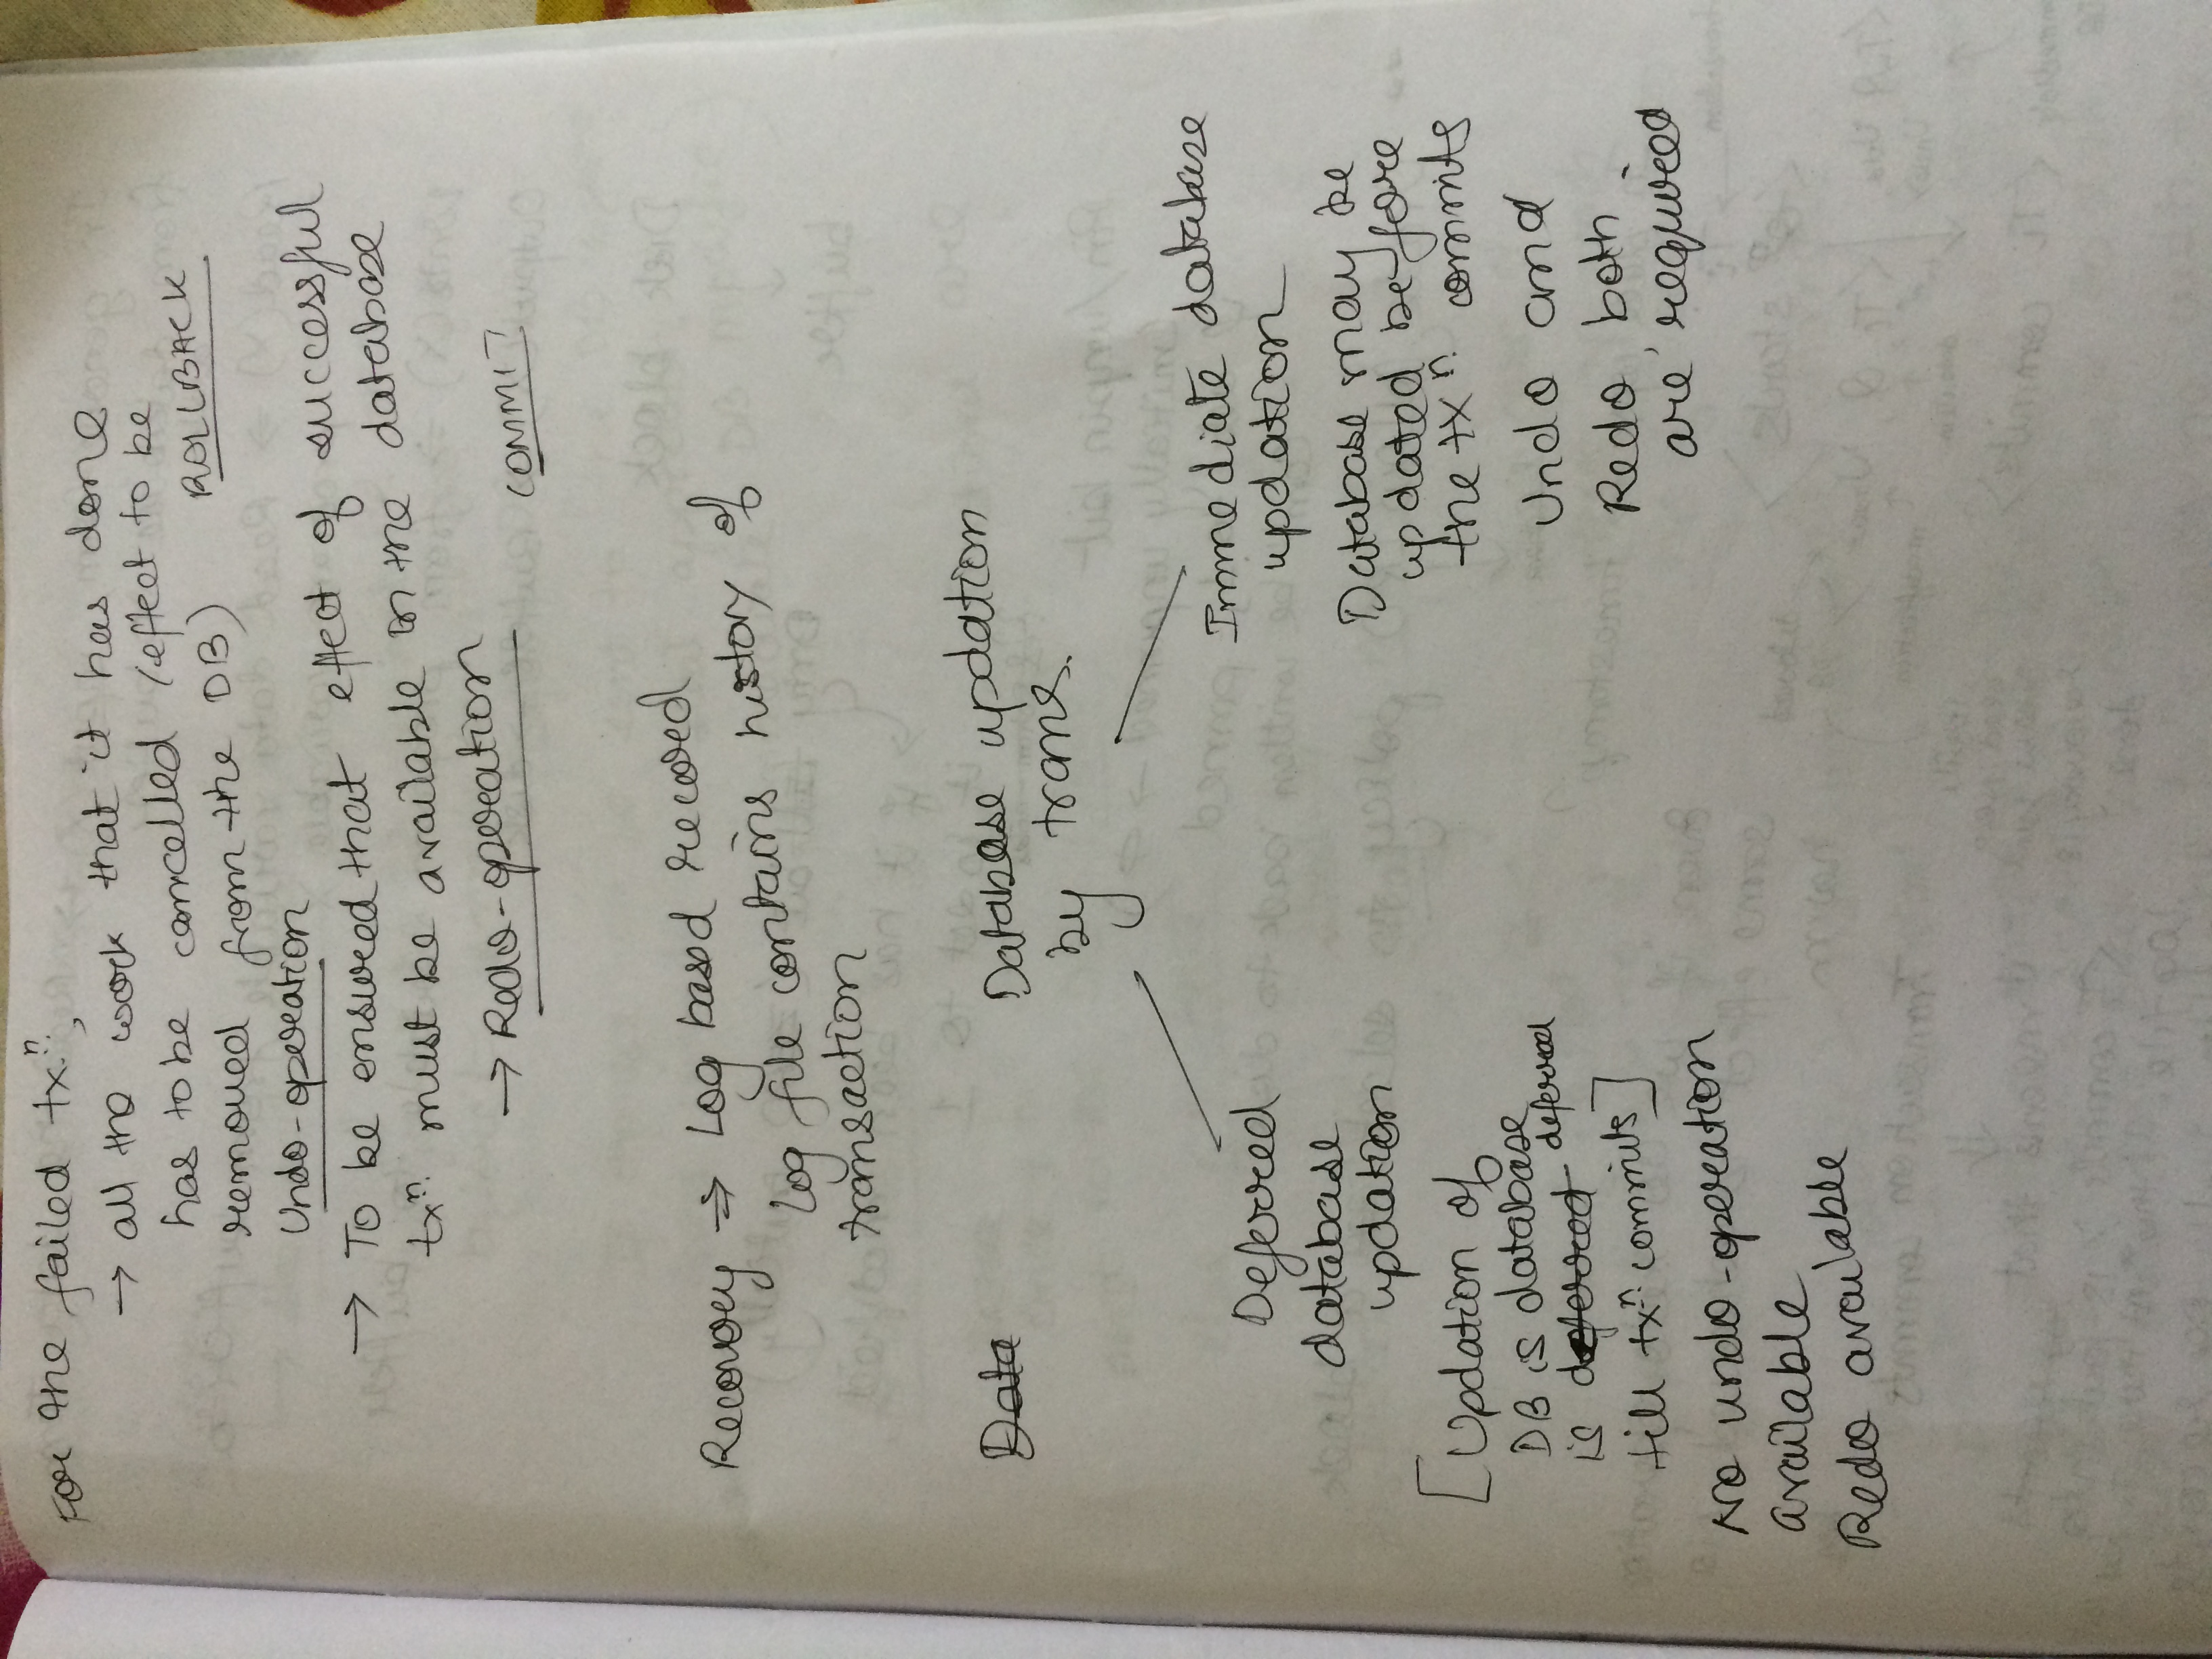 For the failed txⁿ.,
→ all the work that it has done
has to be cancelled (effect to be
removed from the DB) ROLLBACK
Undo-operation
→ To be ensured that effect of successful
txⁿ. must be available in the database
→ Redo-operation COMMIT
Recovery ⇒ Log based record
Log file contains history of
transaction
Data
Database updation
by trans.
Deferred
database
updation
[Updation of
DB is database
is deferred deferred
till txⁿ. commits]
No undo-operation
available
Redo available
Immediate database
updation
Database may be
updated before
the txⁿ. commits
Undo and
Redo both
are required